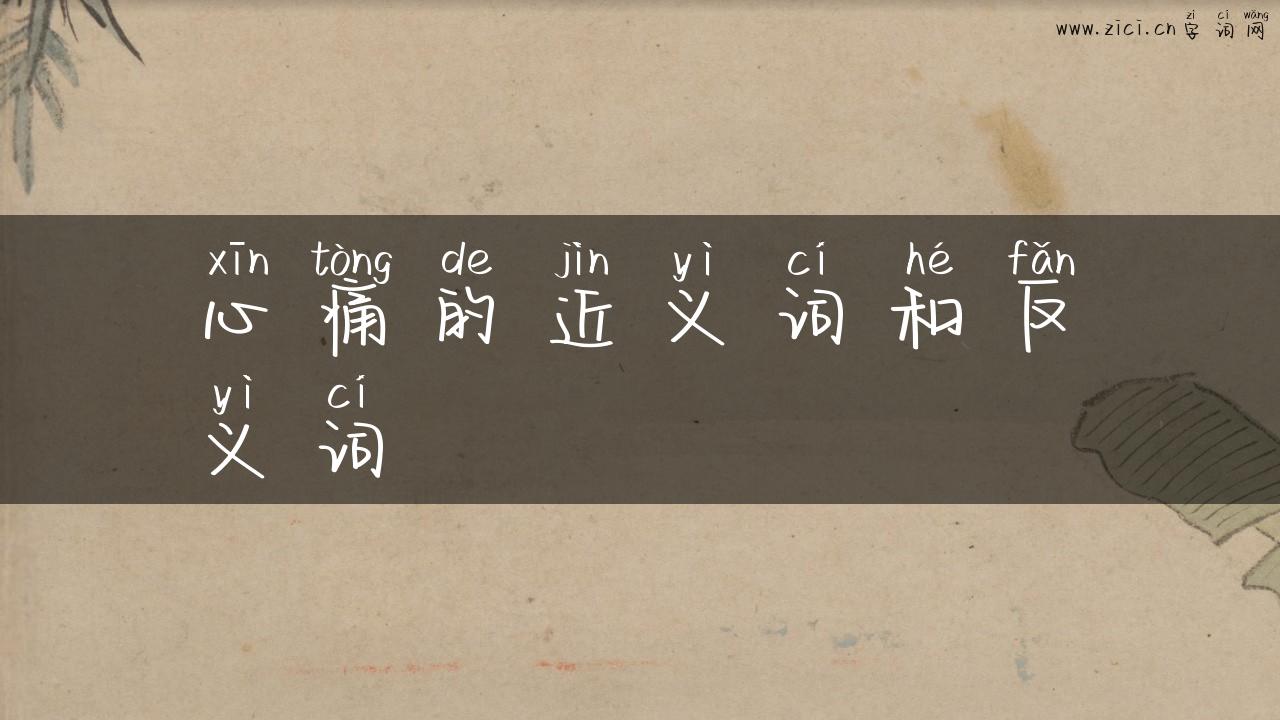 zì cí wǎng
www.zici.cn 字词网
xīn tòng de jìn yì cí hé fǎn
心痛的近义词和反
yì cí
义词